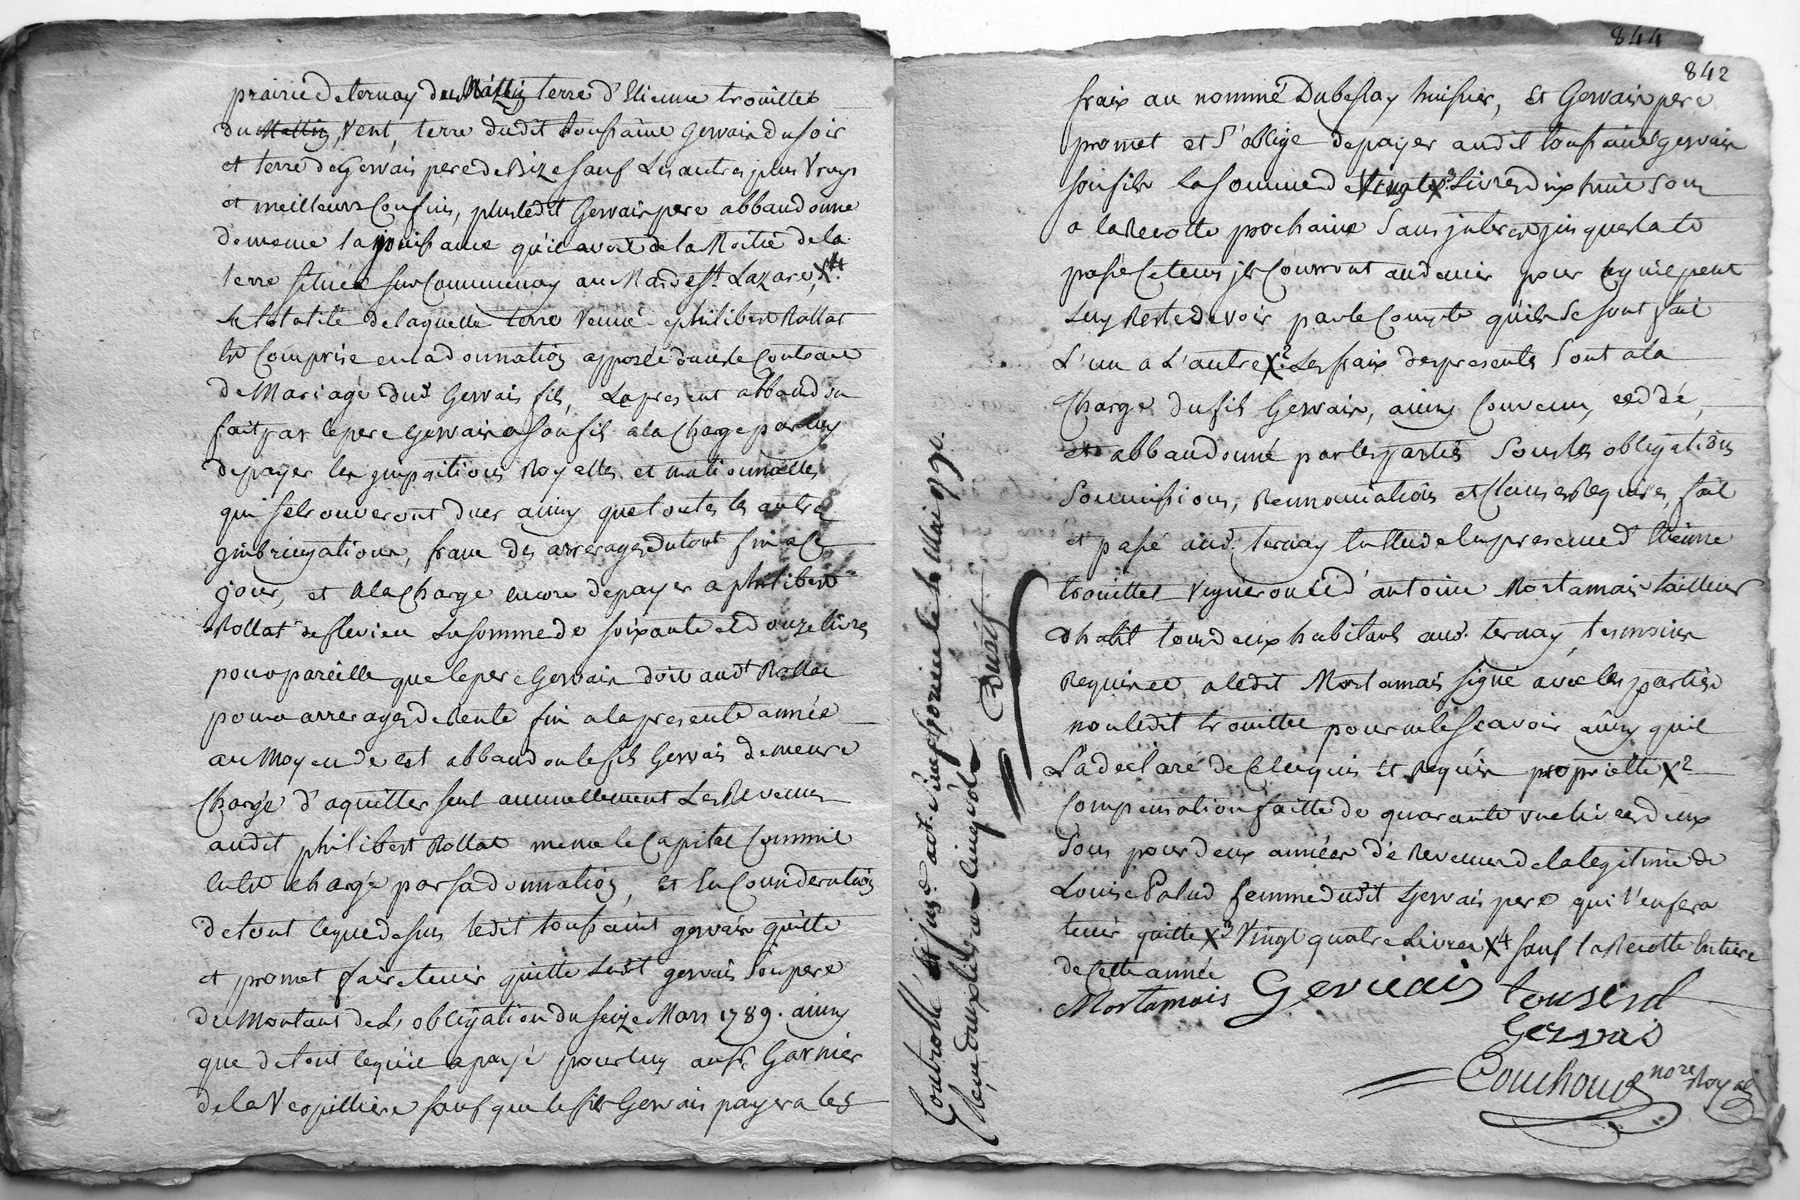 prairie de ternay du Mattin terre d'Etienne trouillet
du Mattin, Vent, terre dudit toussaint Gervais du soir
et terre de Gervais pere de Bize sauf Les autres plus Vrays
et meilleurs Confins, plus ledit Gervais pere abbandonne
de meme la jouissance qu'il avoit de la Moitié de la
terre située sur Communay au Mas de st. Lazare, X4.
la totalité de laquelle terre philibert Rollat
Est Comprise en la donnation apposée dans le Contract
de Mariage dud Gervais fils, Le present abbandon
fait par le pere Gervais a son fils a la Charge par luy
de payer les impositions Royalles et nationnalles
qui se trouveront dues ainsy que toutes les autres
imbrigations, franc des arrerages du tout fin a ce
jour, et a la Charge encore de payer a philibert
Rollat de flevieu La somme de soixante et douze livres
pour pareille que le pere Gervais doit audt Rollat
pour arrerages de Rente fin a la presente année
au Moyen de cet abbandon le fils Gervais demeure
Chargé d'aquitter seul annuellement Les Revenus
audit philibert Rollat meme le Capital Comme
en est chargé par sa donnation, Et En Consideration
de tout ce que dessus ledit toussaint gervais quitte
et promet faire tenir quitte Ledt gervais son pere
du Montant de L'obligation du seize Mars 1789. ainsy
que de tout ce qu'il a payé pour luy au sr. Garnier
de la Verpilliere sauf que le fils Gervais payera les
844
842
fraix au nommé Dubessay huissier, Et Gervais pere
promet et s'oblige de payer audit toussaint gervais
son fils La somme de Vingt X3 Livres dix huit sous
a la Recolte prochaine sans interet jusques la et
passé Ce tems ils Courront au denier pour ce qu'il peut
Luy Reste devoir par le Compte qu'ils se sont fait
L'un a L'autre X2. Les fraix des presentes sont a la
Charge du fils Gervais, ainsy Convenu, cedé,
et abbandonné par les parties sous les obligations
soumissions, Renonciations et Clauses Requises, fait
et passé aud. ternay Etude En presence d'Etienne
trouillet Vigneron et d'antoine Mortamais tailleur
d'habit tous deux habitants aud. ternay, temoins
Requis et a ledit Mortamais signé avec les parties
non ledit trouillet pour ne le scavoir ainsy qu'il
L'a declaré de Ce enquis Et Requis proprietté X2
Compensation faitte de quarante une livres deux
sous pour deux années de Revenus de la legitime de
Louise Palud femme dudit Gervais pere qui l'en fera
tenir quitte X3 Vingt quatre Livres X4 sauf la Recolte Entiere
de Cette année
Mortamais Gervais tousent
Gervais
Couchoud nore Royal
Controllé Et insé. a st. Simphorien le 4 Mai 1790.
Reçu six livres cinq sols